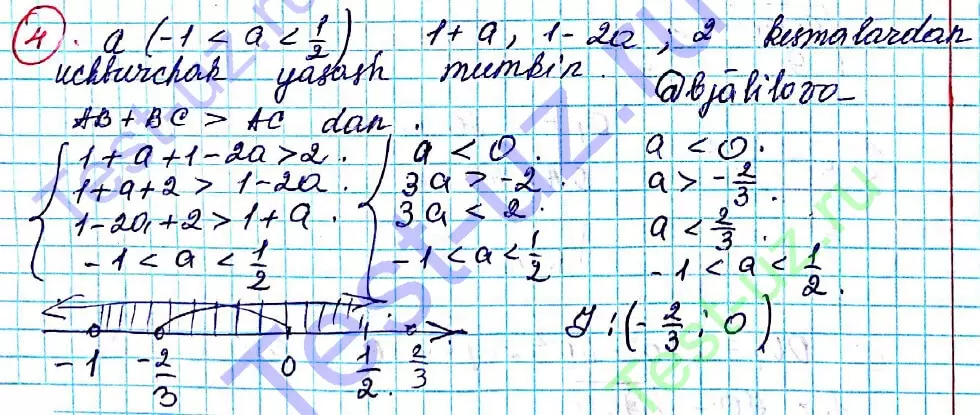 4. a (-1 < a < 1/2) 1+a, 1-2a, 2 kesmalardan
uchburchak yasash mumkin.
@bjalilovo_
AB + BC > AC dan.
{ 1+a+1-2a>2. { a < 0. a < 0.
1+a+2 > 1-2a. 3a > -2. a > -2/3.
1-2a+2 > 1+a. 3a < 2. a < 2/3.
-1 < a < 1/2 -1 < a < 1/2 -1 < a < 1/2.
J: (-2/3; 0)
-1 -2/3 0 1/2. 2/3
Test-uz.ru
Test-uz.ru
Test-uz.ru